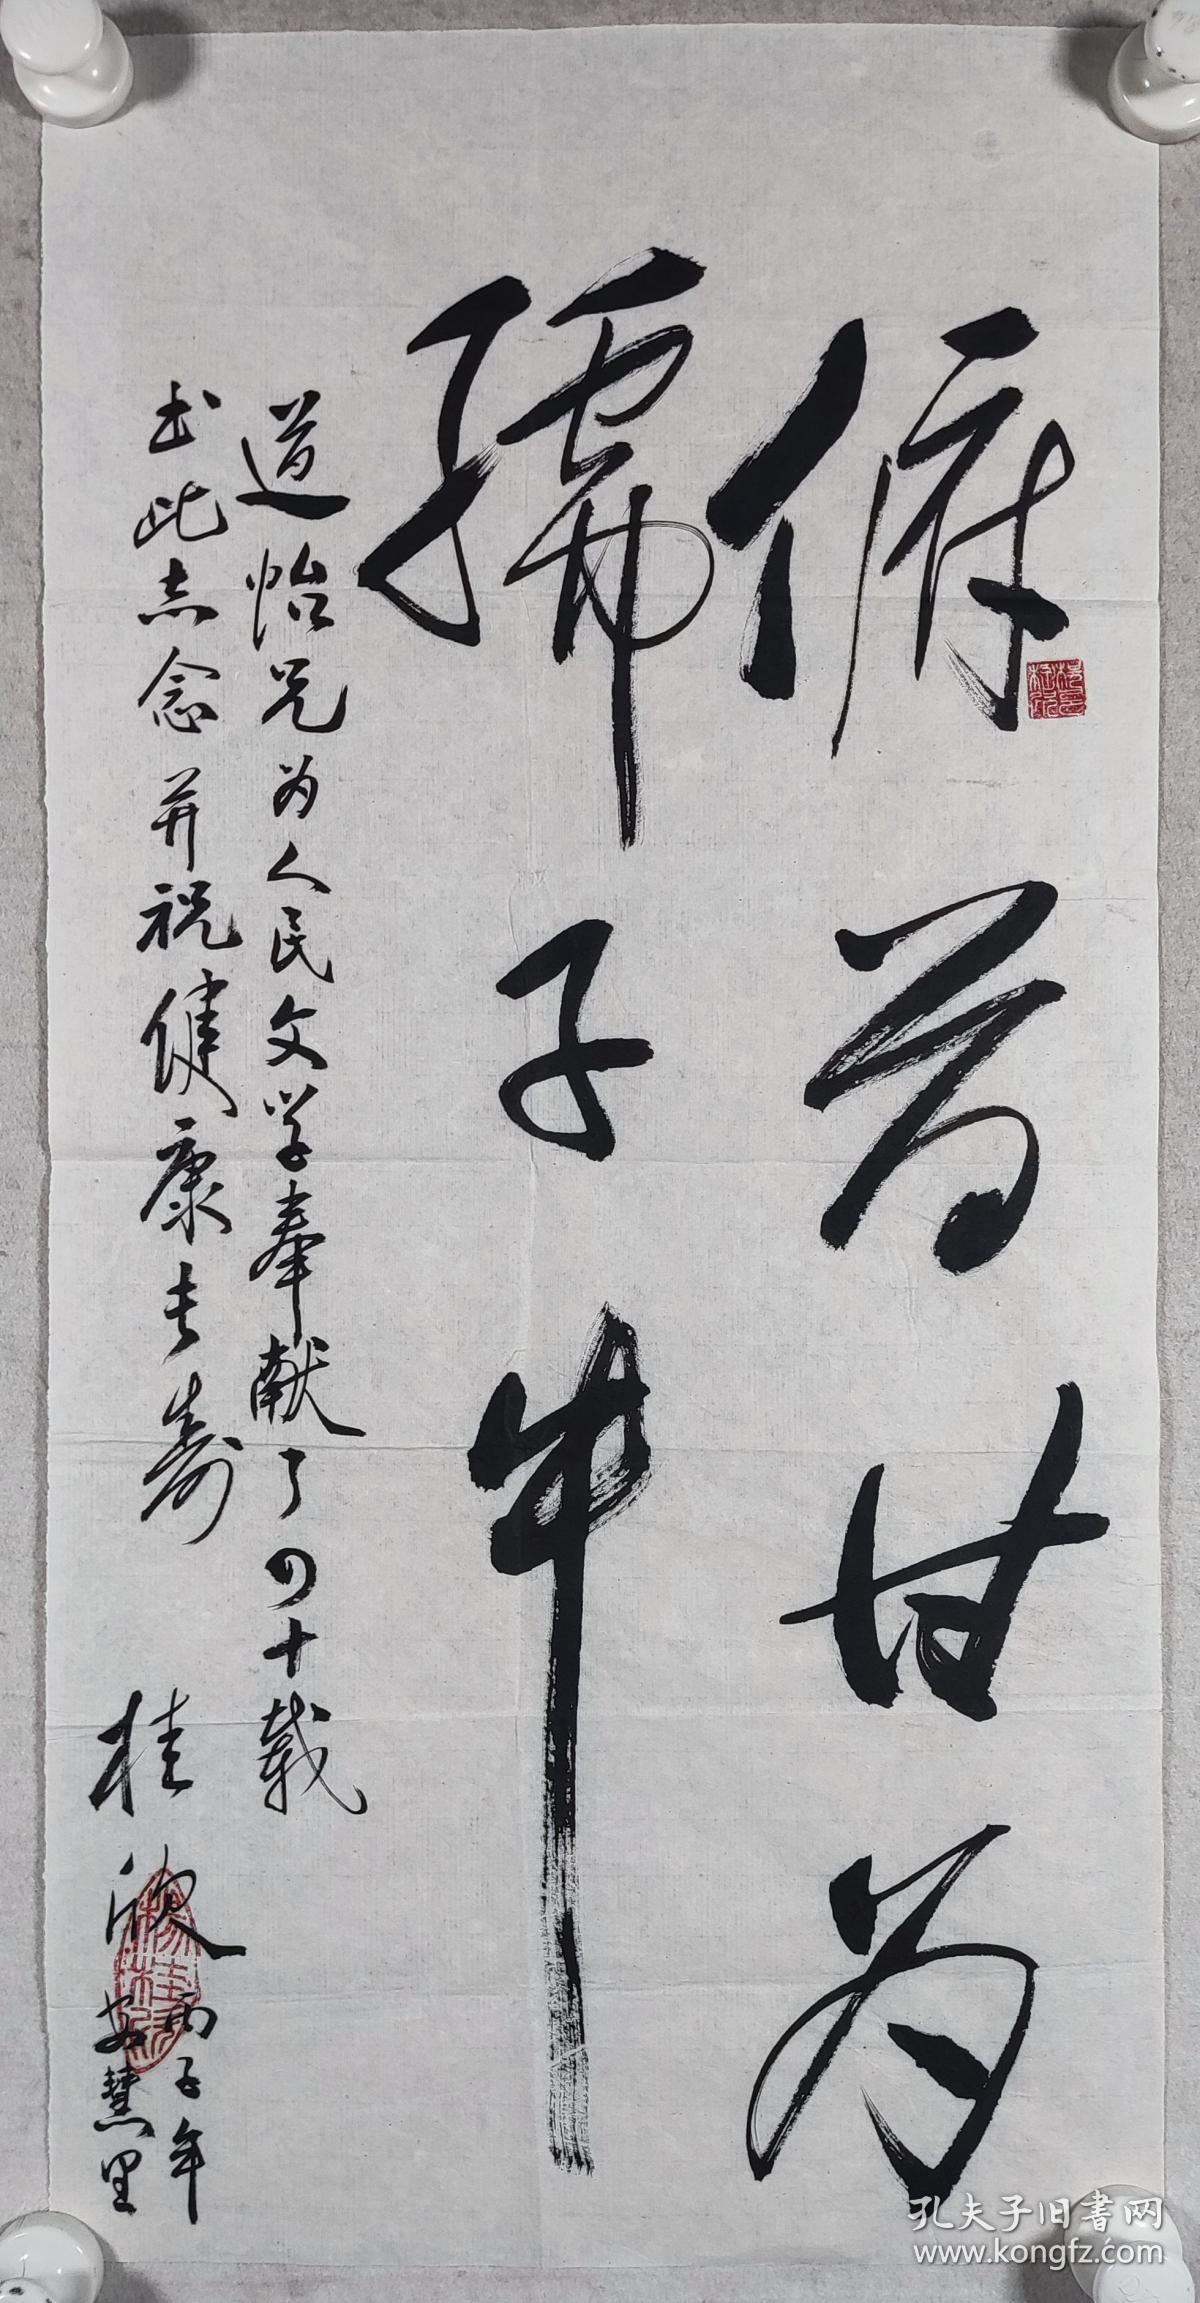 俯首甘为
孺子牛
道怡兄为人民文学奉献了四十载
书此志念并祝健康长寿
桂欣
丙子年
安慧里
孔夫子旧书网
www.kongfz.com